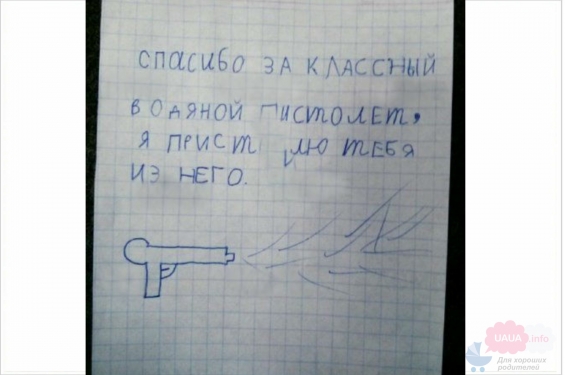 СПАСИБО ЗА КЛАССНЫЙ
ВОДЯНОЙ ПИСТОЛЕТ,
Я ПРИСТ ИЛЮ ТЕБЯ
ИЗ НЕГО.
UAUA.info
Для хороших
родителей